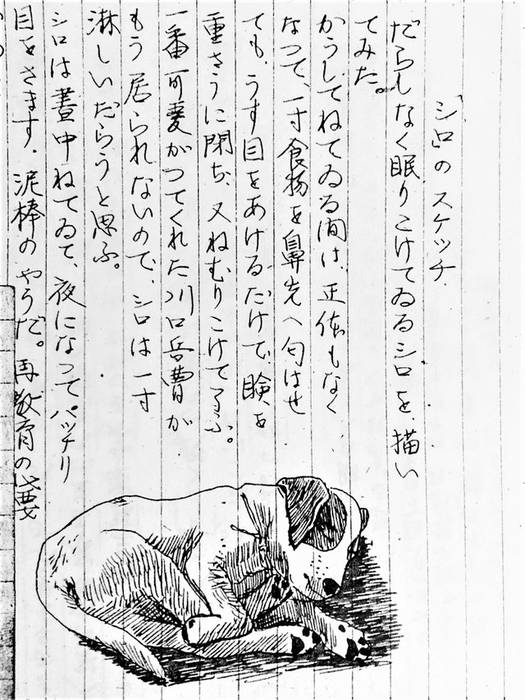 シロのスケッチ
だらしなく眠りこけてゐるシロを、描い
てみた。
かうしてねてゐる間は、正体もなく
なって、一寸食物を鼻先へ匂はせ
ても、うす目をあけるだけで、瞼を
重さうに閉ぢ、又ねむりこけて了ふ。
一番可愛がつてくれた川口兵曹が
もう居られないので、シロは一寸
淋しいだらうと思ふ。
シロは晝中ねてゐて、夜になってパッチリ
目をさます。泥棒のやうだ。再教育の必要